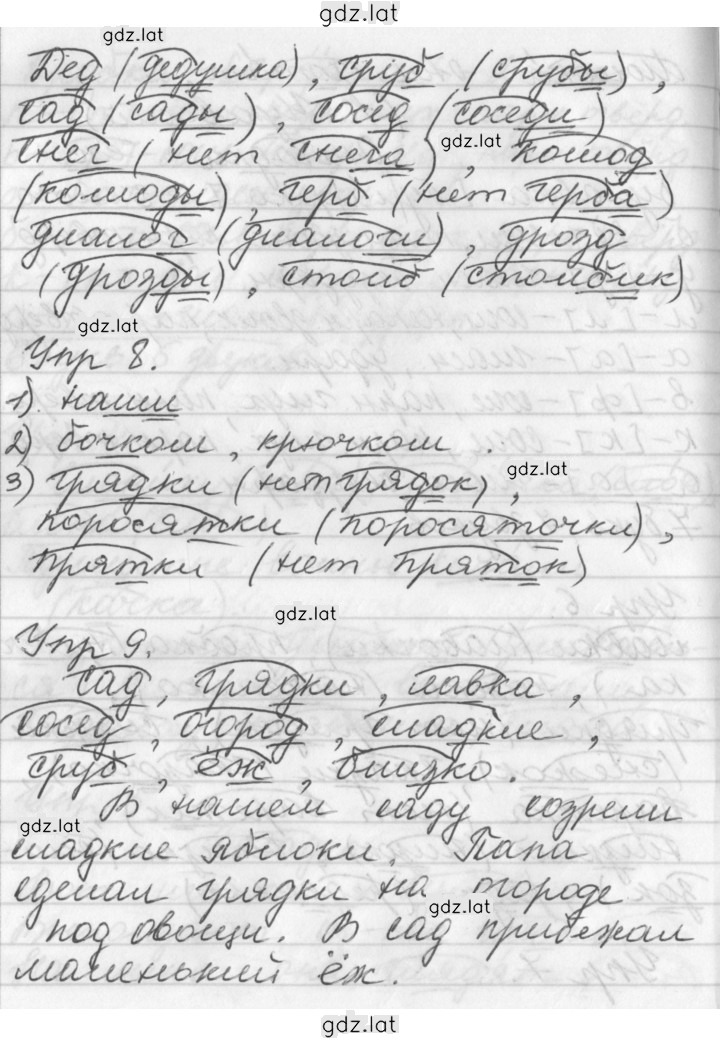 gdz.lat
gdz.lat
Дед (дедушка), сруб (срубы),
сад (сады), сосед (соседи)
gdz.lat
снег (нет снега), комод
(комоды), герб (нет герба)
диалог (диалоги), дрозд
(дрозды), столб (столбик)
gdz.lat
Упр 8.
1) наши
2) бочком, крючком.
3) грядки (нет грядок),
gdz.lat
поросятки (поросяточки),
прятки (нет пряток)
gdz.lat
Упр 9.
сад, грядки, лавка,
сосед, огород, сладкие,
сруб, ёж, близко.
В нашем саду созрели
gdz.lat
сладкие яблоки. Папа
сделал грядки на огороде
gdz.lat
под овощи. В сад прибежал
маленький ёж.
gdz.lat